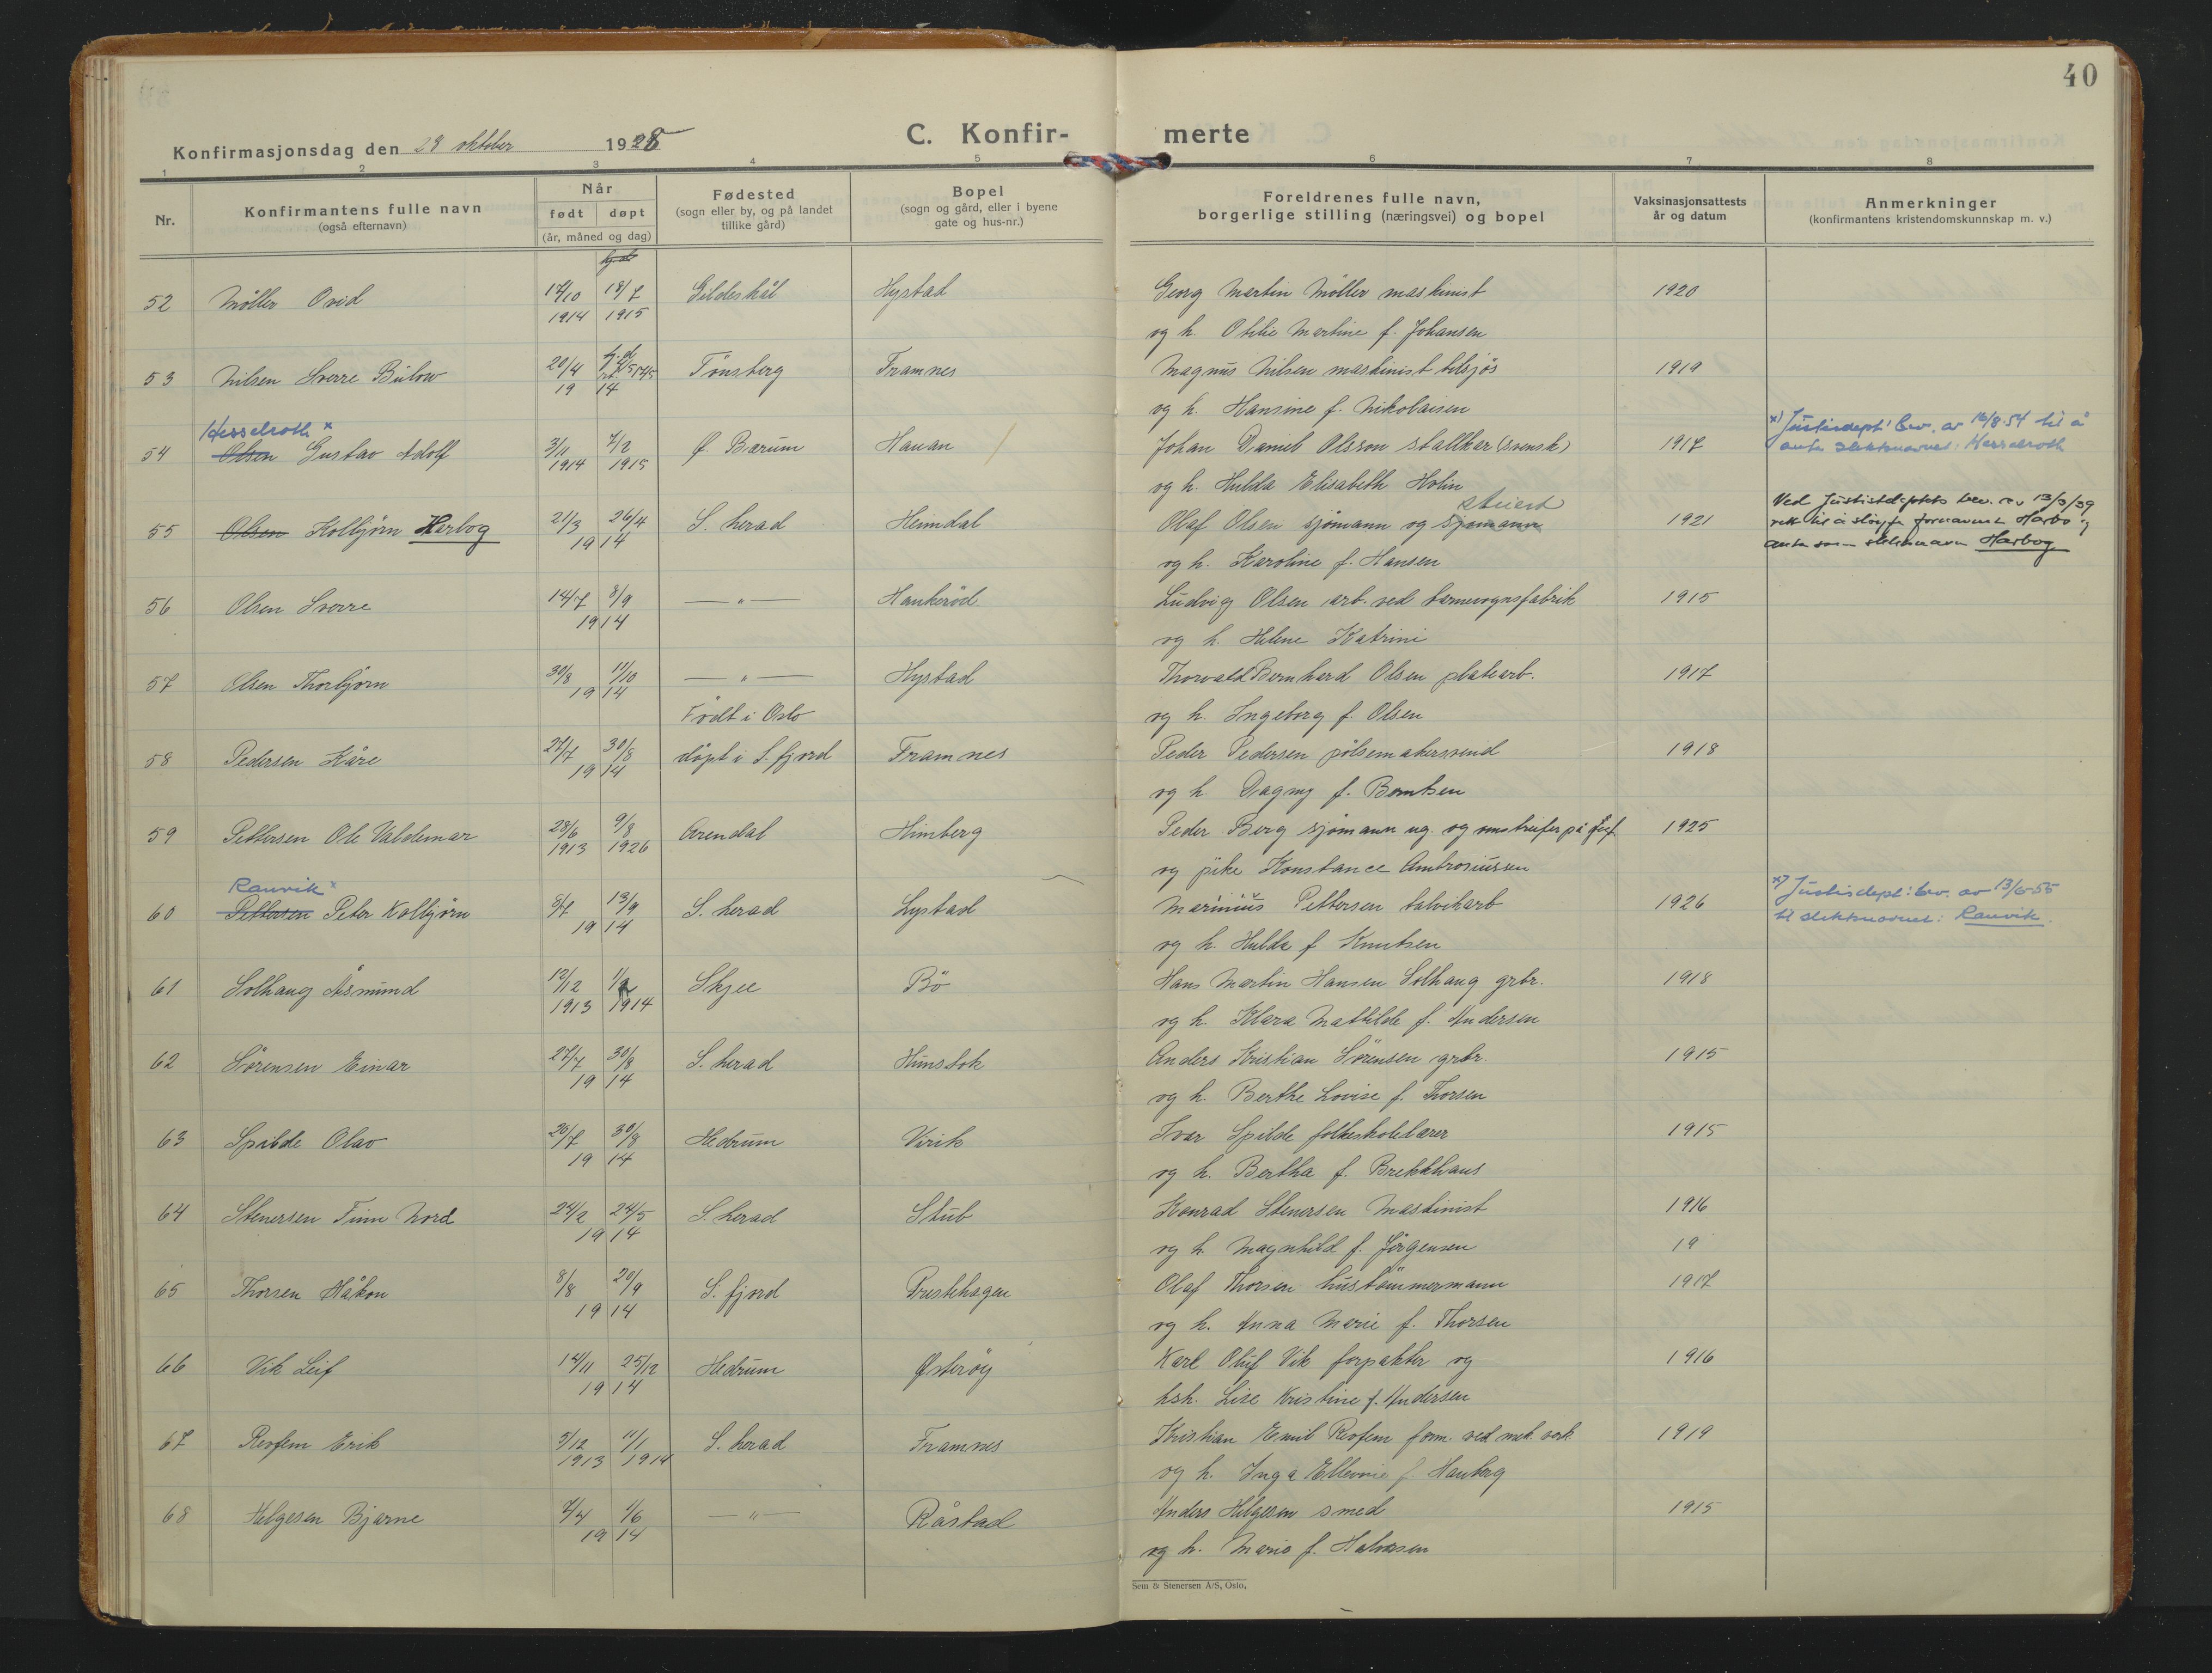 40
Konfirmasjonsdag den 28 oktober 1928
C. Konfir- merte
1 2 3 4 5 6 7 8
Nr.
Konfirmantens fulle navn
(også efternavn)
Når
født døpt
(år, måned og dag)
Fødested
(sogn eller by, og på landet
tillike gård)
Bopel
(sogn og gård, eller i byene
gate og hus-nr.)
Foreldrenes fulle navn,
borgerlige stilling (næringsvei) og bopel
Vaksinasjonsattests
år og datum
Anmerkninger
(konfirmantens kristendomskunnskap m. v.)
52 Möller Ovid 17/10 1914 18/7 1915 Gildeskål Hystad Georg Martin Möller maskinist 1920
og h. Otilie Martine f. Johansen
53 Nilsen Sverre Bülow 20/4 1914 Tønsberg Framnes Magnus Nilsen maskinist tilsjös 1919
og h. Hansine f. Nikolaisen
Hesselroth x
54 Olsen Gustav Adolf 3/11 1914 7/2 1915 Ø. Bærum Hauan Johan Daniel Olsson stallkar (svensk) 1917
x) Justisdept' bev. av 16/8 54 til å
anta slektsnavnet: Hesselroth
og h. Hulda Elisabeth Holin
55 Olsen Kolbjörn Harbog 21/3 26/4 1914 S. herad Heimdal Olaf Olsen sjömann og stuert 1921
Ved Justisdeptets bev. av 13/3/39
rett til å sløyfe fornavnet Harbo og
anta som slektsnavn Harbog
og h. Karoline f. Hansen
56 Olsen Sverre 14/7 8/9 1914 — " — Haukeröd Ludvig Olsen arb. ved barnevognsfabrik 1915
og h. Helene Katrini
57 Olsen Thorbjörn 30/8 11/10 1914 — " — Hystad Thorvald Bernhard Olsen platearb. 1917
og h. Ingeborg f. Olsen
Födt i Oslo
58 Pedersen Kåre 27/7 30/8 1914 döpt i S. fjord Framnes Peder Pedersen pölsemakersvend 1918
og h. Dagny f. Berntsen
59 Pettersen Ole Valdemar 28/6 1913 9/8 1926 Arendal Himberg Peder Berg sjömann ug. og omstreifer 1925
og pike Konstance Ambrosiussen
Ranvik x
60 Pettersen Peter Kolbjörn 5/7 13/9 1914 S. herad Lystad Marinius Pettersen 1926
x) Justisdept: bev. av 13/6-55
til slektsnavnet: Ranvik.
og h. Hulda f Knutsen
61 Solhaug Åsmund 12/12 1913 1914 Skjee Bö Hans Martin Hansen Solhaug grbr. 1918
og h. Klara Mathilde f. Andersen
62 Sörensen Einar 27/7 30/8 1914 S. herad Hunstok Anders Kristian Sörensen grbr. 1915
og h. Berthe Lovise f. Thorsen
63 Spilde Olav 26/7 30/9 1914 Hedrum Virik Ivar Spilde folkeskolelærer 1915
og h. Bertha f. Brekkhaus
64 Stenersen Finn Nord 24/2 24/5 1914 S. herad Stub Konrad Stenersen Maskinist 1916
og h. Magnhild f. Jörgensen 19
65 Thorsen Håkon 8/8 20/9 1914 S. fjord Prestehagen Olaf Thorsen hustömmermann 1917
og h. Anna Marie f. Thorsen
66 Vik Leif 14/11 25/12 1914 Hedrum Østeröy Karl Oluf Vik forpakter og 1916
hsh. Lise Kristine f. Andersen
67 Revfem Erik 3/12 1913 11/1 1914 S. herad Framnes Kristian Emil Revfem form. ved mek. verk. 1919
og h. Inga Ellevine f. Hauberg
68 Helgesen Bjarne 7/4 1/6 1914 — " — Råstad Anders Helgesen smed 1915
og h. Marie f. Halvorsen
Sem & Stenersen A/S, Oslo.